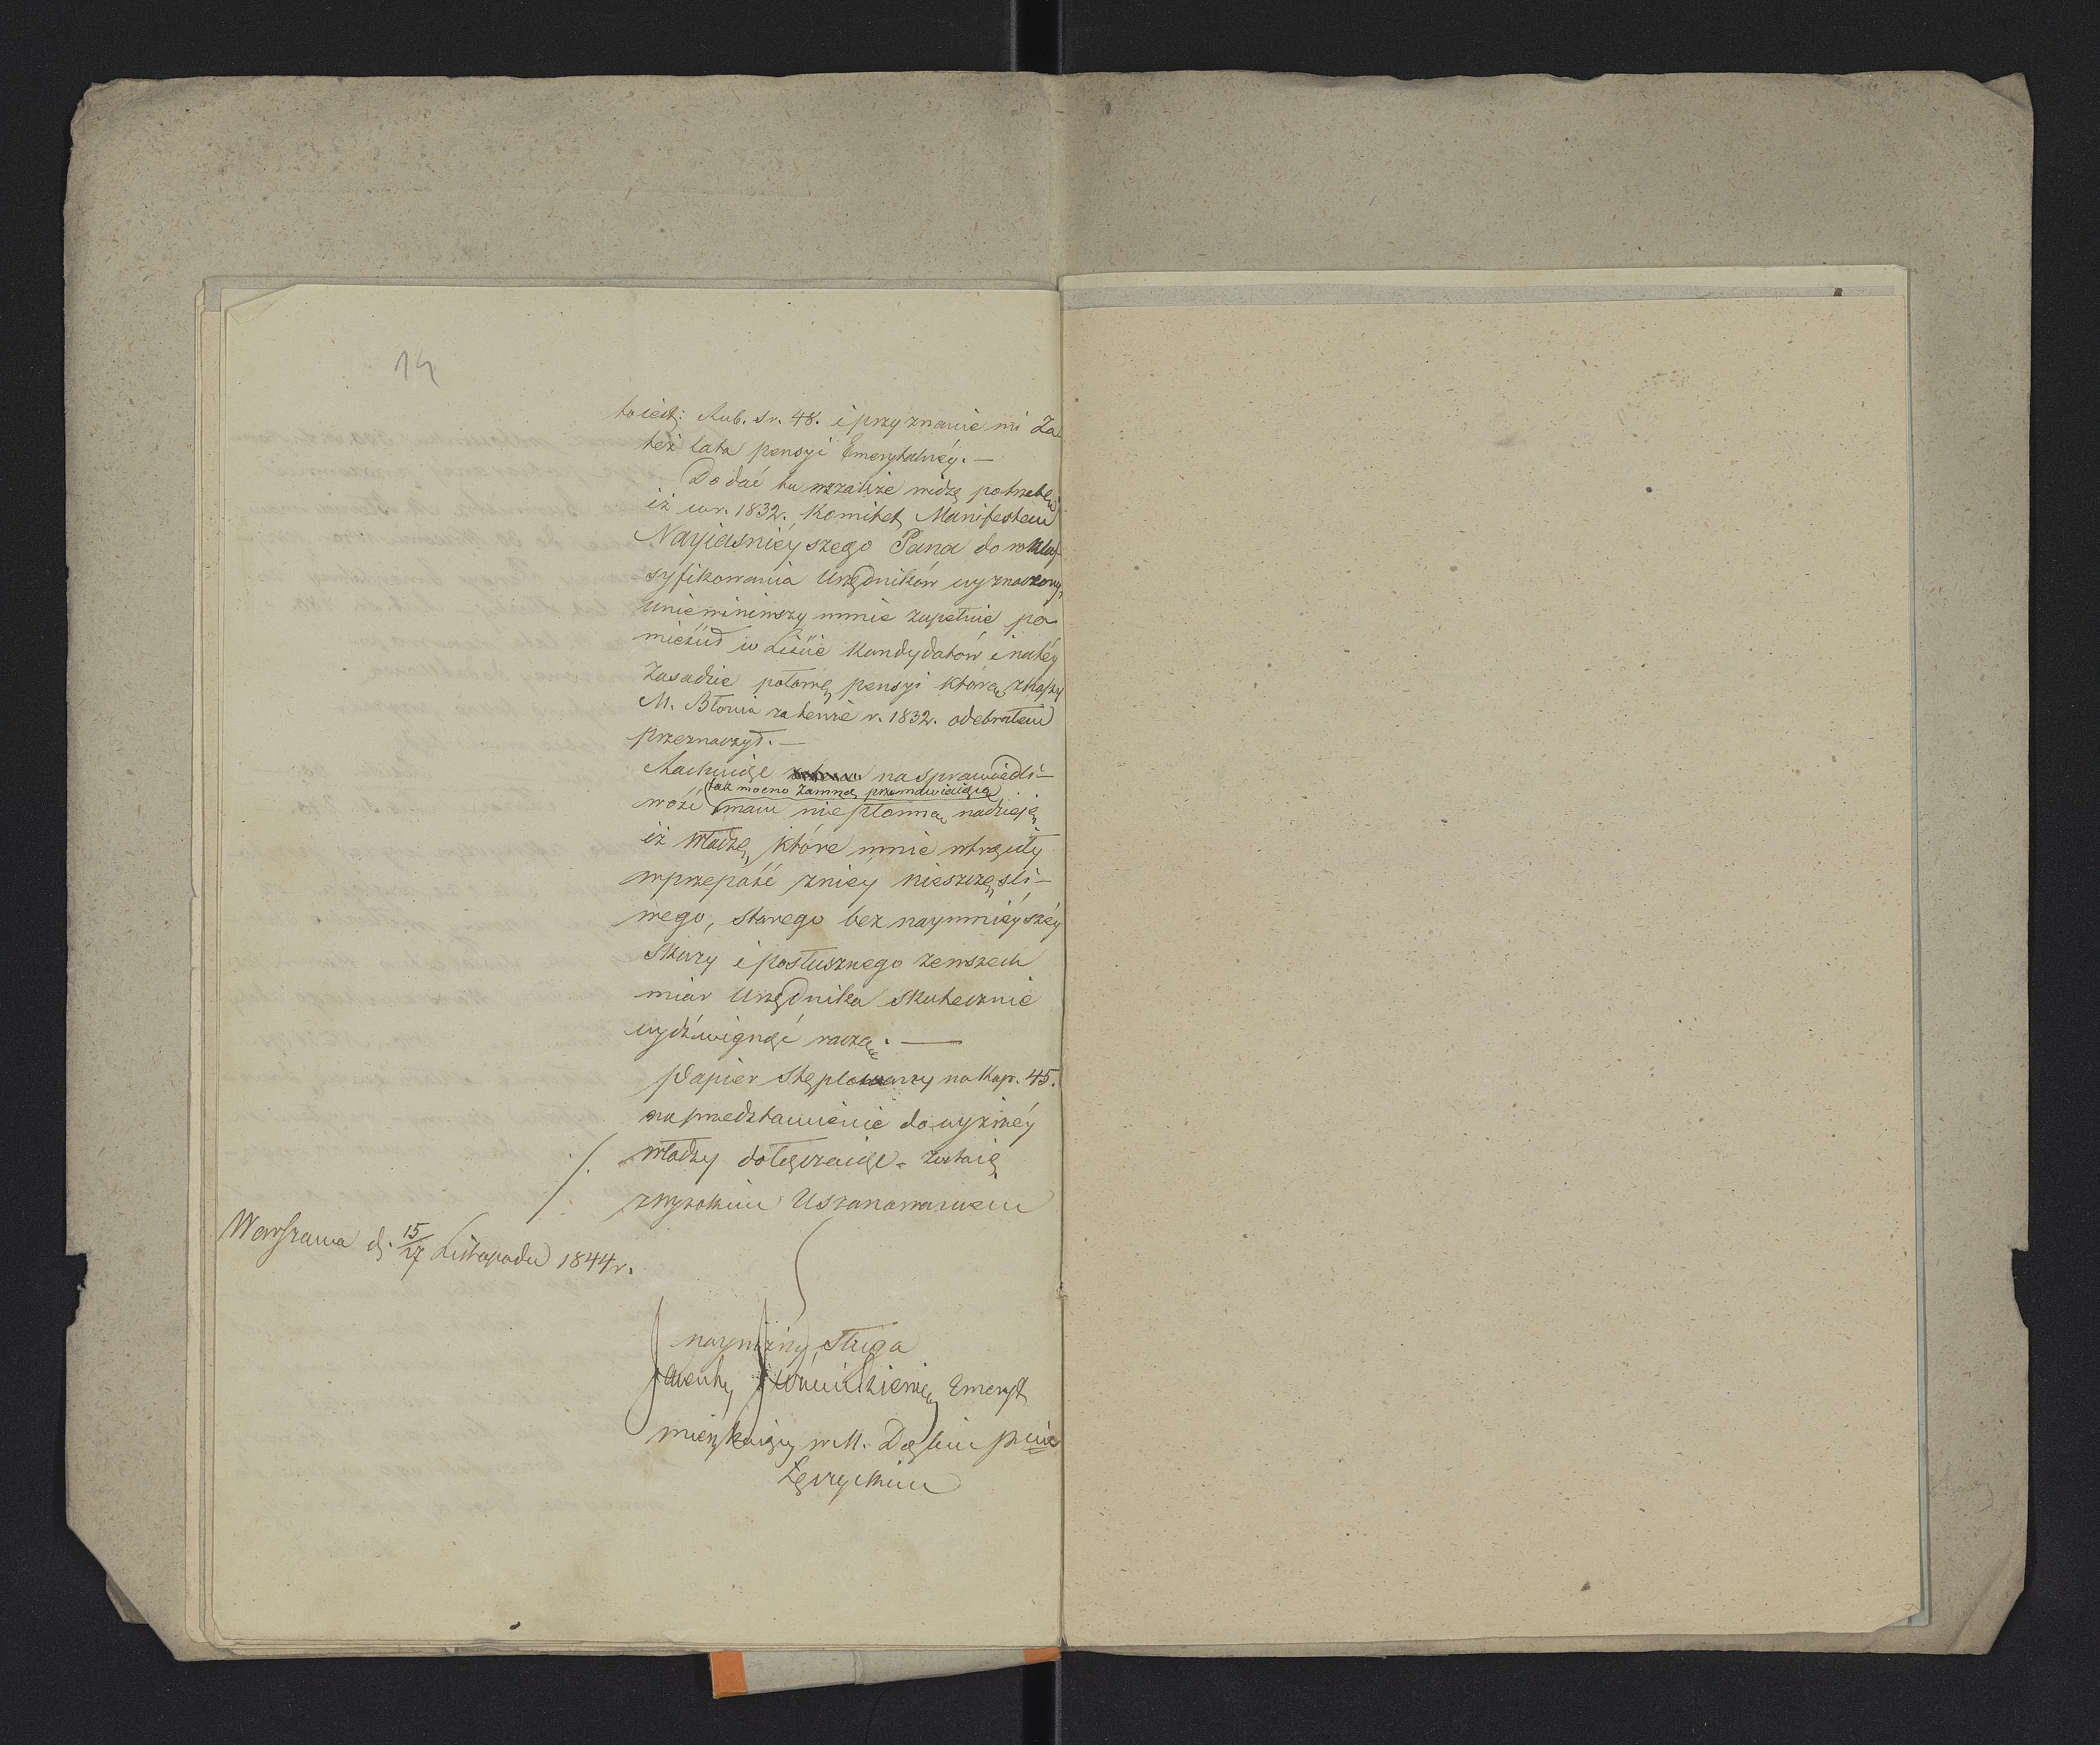 14
to iest: Rub. sr. 48. i przyznanie mi za
też lata pensyi Emerytalnéy. —
Dodać tu wszakże widzę potrzebę
iż w r. 1832. Komitet Manifestem
Nayiaśnieyszego Pana do rokla-
syfikowania Urzędników wyznaczony,
uniewiniwszy mnie zupełnie po
mieścił w Liście Kandydatów i na téy
Zasadzie połowę pensyi którą z Kassy
M. Błonia za tenże r. 1832. odebrałem
przeznaczył. —
Rachuiąc na sprawiedli-
tak mocno zamną przemawiaiącą
wość mam niepłonną nadzieję
iż Władze, które mnie wtrąciły
w przepaść z niéy nieszczęśli-
wego, starego bez naymnieyszéy
Skazy i posłusznego ze wszech
miar Urzędnika skutecznie
wydźwignąć raczą. —
Papier Stęplowany na Kop. 45.
na przedstawienie do wyższéy
Władzy dołączaiąc - zostaię
z wysokim Uszanowaniem
Warszawa d. 15/27 Listopada 1844 r.
nayniższy sługa
Emeryt
mieszkaiący w M. Dąbiu pcie
Łęczyckim